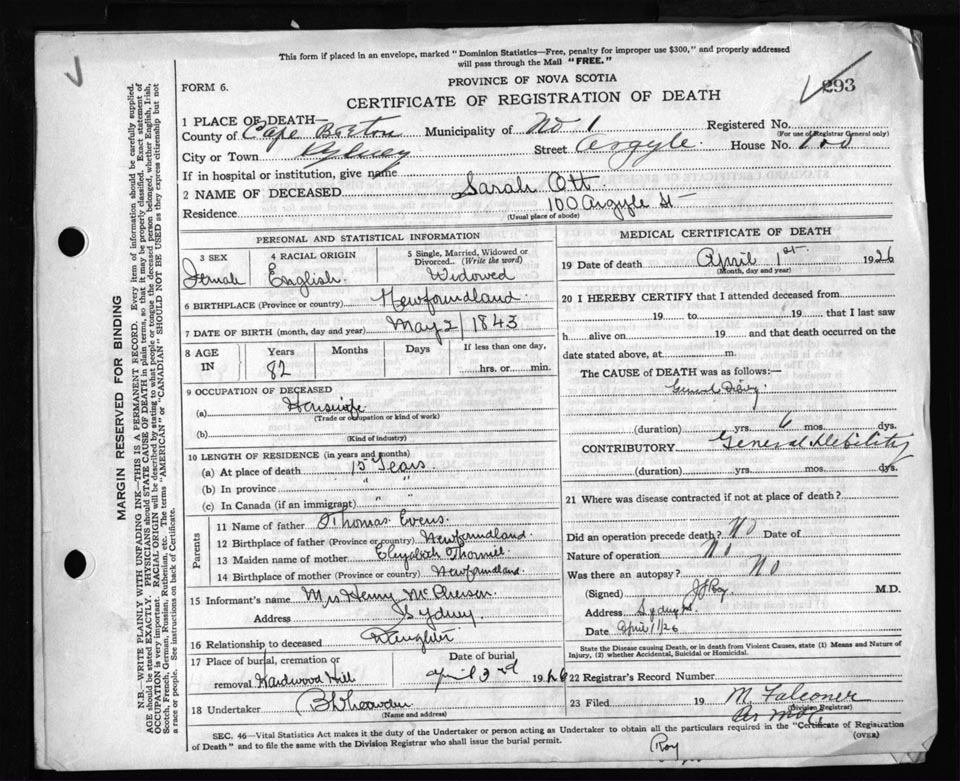 This form if placed in an envelope, marked "Dominion Statistics—Free, penalty for improper use $300," and properly addressed
will pass through the Mail "FREE."
PROVINCE OF NOVA SCOTIA
293
FORM 6.
CERTIFICATE OF REGISTRATION OF DEATH
1 PLACE OF DEATH—
County of Cape Breton Municipality of No 1 Registered No.
(For use of Registrar General only)
City or Town Sydney Street Argyle House No. 100
If in hospital or institution, give name
2 NAME OF DECEASED Sarah Ott
Residence 100 Argyle St
(Usual place of abode)
PERSONAL AND STATISTICAL INFORMATION
3 SEX 4 RACIAL ORIGIN 5 Single, Married, Widowed or
Divorced.. (Write the word)
Female English Widowed
6 BIRTHPLACE (Province or country) Newfoundland
7 DATE OF BIRTH (month, day and year) May 2/1843
8 AGE IN Years Months Days If less than one day,
82 hrs. or min.
9 OCCUPATION OF DECEASED
(a) Housewife
(Trade or occupation or kind of work)
(b)
(Kind of industry)
10 LENGTH OF RESIDENCE (in years and months)
(a) At place of death 15 Years
(b) In province " "
(c) In Canada (if an immigrant) " "
Parents
11 Name of father Thomas Evens
12 Birthplace of father (Province or country) Newfoundland
13 Maiden name of mother Elizabeth
14 Birthplace of mother (Province or country) Newfoundland
15 Informant's name Mrs Henry McPherson
Address Sydney
16 Relationship to deceased Daughter
17 Place of burial, cremation or Date of burial
removal Hardwood Hill April 3rd 1926
18 Undertaker
(Name and address)
MEDICAL CERTIFICATE OF DEATH
19 Date of death April 1st 1926
(Month, day and year)
20 I HEREBY CERTIFY that I attended deceased from
19 to 19 that I last saw
h alive on 19 and that death occurred on the
date stated above, at m.
The CAUSE of DEATH was as follows:—
(duration) yrs. 6 mos. dys.
CONTRIBUTORY General Debility
(duration) yrs. mos. dys.
21 Where was disease contracted if not at place of death?
Did an operation precede death? No Date of
Nature of operation No
Was there an autopsy? No
(Signed) Roy M.D.
Address Sydney
Date April 1/26
State the Disease causing Death, or in death from Violent Causes, state (1) Means and Nature of
Injury, (2) whether Accidental, Suicidal or Homicidal.
22 Registrar's Record Number
23 Filed 19 M. Falconer
(Division Registrar)
SEC. 46—Vital Statistics Act makes it duty of the Undertaker or person acting as Undertaker to obtain all the particulars required in the "Certificate of Registration
of Death" and to file the same with the Division Registrar who shall issue the burial permit.
(OVER)
Roy
MARGIN RESERVED FOR BINDING
N.B.—WRITE PLAINLY WITH UNFADING INK—THIS IS A PERMANENT RECORD. Every item of information should be carefully supplied.
AGE should be stated EXACTLY. PHYSICIANS should STATE CAUSE OF DEATH in plain terms, so that it may be properly classified. Exact statement of
OCCUPATION is very important. RACIAL ORIGIN will be described by stating to what people or tongue the deceased person belonged, whether English, Irish,
Scotch, French, German, Russian, Ruthenian, etc. The terms "AMERICAN" or "CANADIAN" SHOULD NOT BE USED as they express citizenship but not
a race or people. See instructions on back of Certificate.